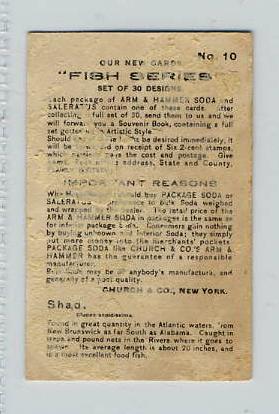 No. 10
OUR NEW CARDS
"FISH SERIES"
SET OF 30 DESIGNS
Each package of ARM & HAMMER SODA and
SALERATUS contain one of these cards. After
collecting full set of 30, send them to us and we
will forward you a Souvenir Book, containing a full
set gotten in Artistic Style.
Should be desired immediately, it
will be on receipt of Six 2-cent stamps,
which the cost and postage. Give
Name, State and County,
IMPORTANT REASONS
Why should buy PACKAGE SODA or
SALERATUS to bulk Soda weighed
and wrapped by the The retail price of the
ARM & HAMMER SODA in packages is the same as
for inferior package Sodas. Consumers gain nothing
by buying unknown and inferior Soda; they simply
put more money into the merchants' pockets
PACKAGE SODA like CHURCH & CO'S ARM &
HAMMER has the guarantee of a responsible
manufacturer.
Soda may be of anybody's manufacture, and
generally of a poor quality.
CHURCH & CO., NEW YORK.
Shad.
Found in great quantity in the Atlantic waters, from
New Brunswick as far South as Alabama. Caught in
traps and pound nets in the Rivers where it goes to
spawn. Its average length is about 20 inches, and
is a most excellent food fish.